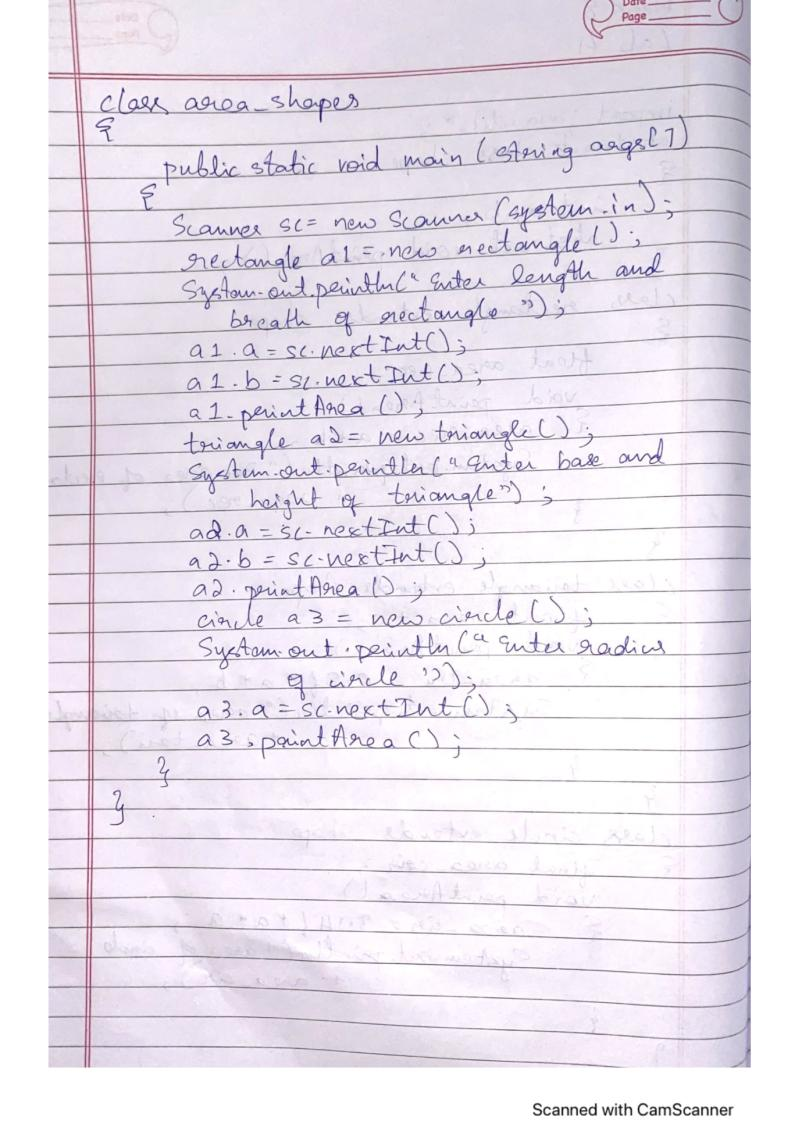 Date
Page
class area_shapes
{
public static void main (string args[])
{
Scanner sc = new Scanner (system.in);
rectangle a1 = new rectangle();
System.out.println(" Enter length and
breath of rectangle ");
a1.a = sc.nextInt();
a1.b = sc.nextInt();
a1.printArea ();
triangle a2 = new triangle();
System.out.println(" Enter base and
height of triangle") ;
a2.a = sc.nextInt();
a2.b = sc.nextInt();
a2.printArea ();
circle a3 = new circle ();
System.out.println(" Enter radius
of circle ");
a3.a = sc.nextInt();
a3.printArea ();
}
}
Scanned with CamScanner